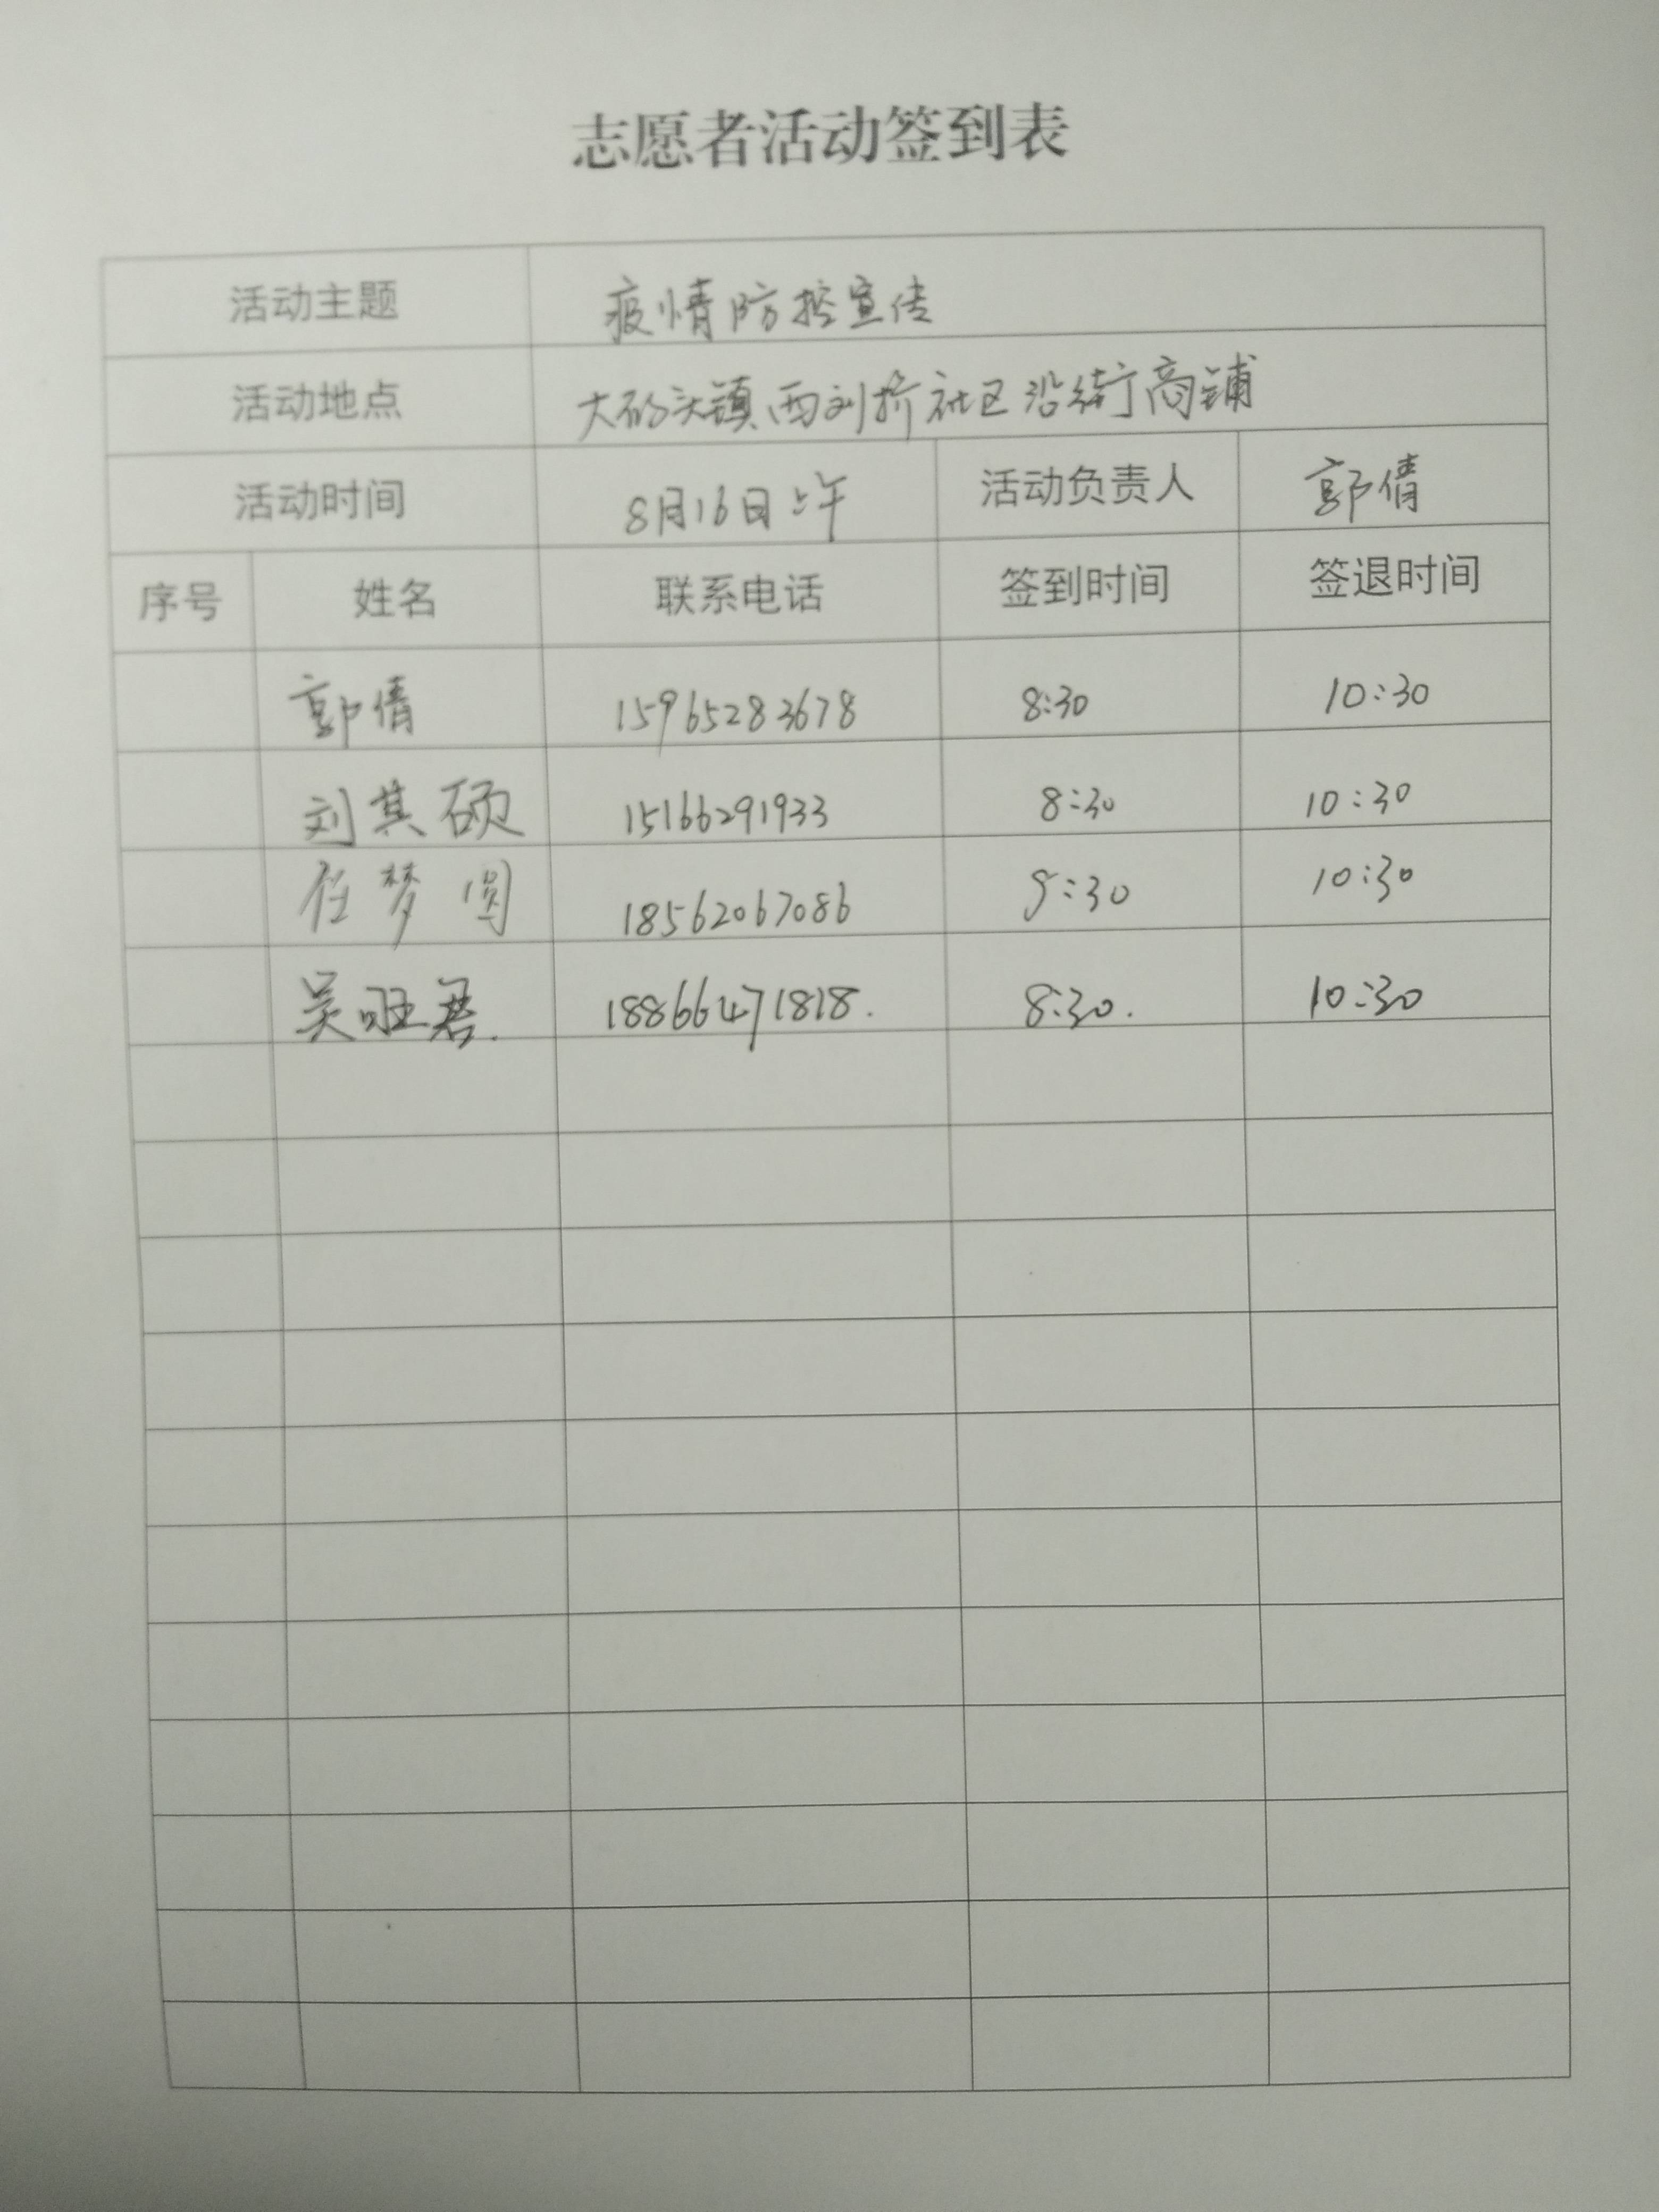 志愿者活动签到表
活动主题 疫情防控宣传
活动地点 大码头镇西刘桥社区沿街商铺
活动时间 8月16日上午 活动负责人 郭倩
序号 姓名 联系电话 签到时间 签退时间
郭倩 15965283678 8:30 10:30
刘其硕 15166291933 8:30 10:30
任梦圆 18562067086 8:30 10:30
吴旺君. 18866471818. 8:30. 10:30